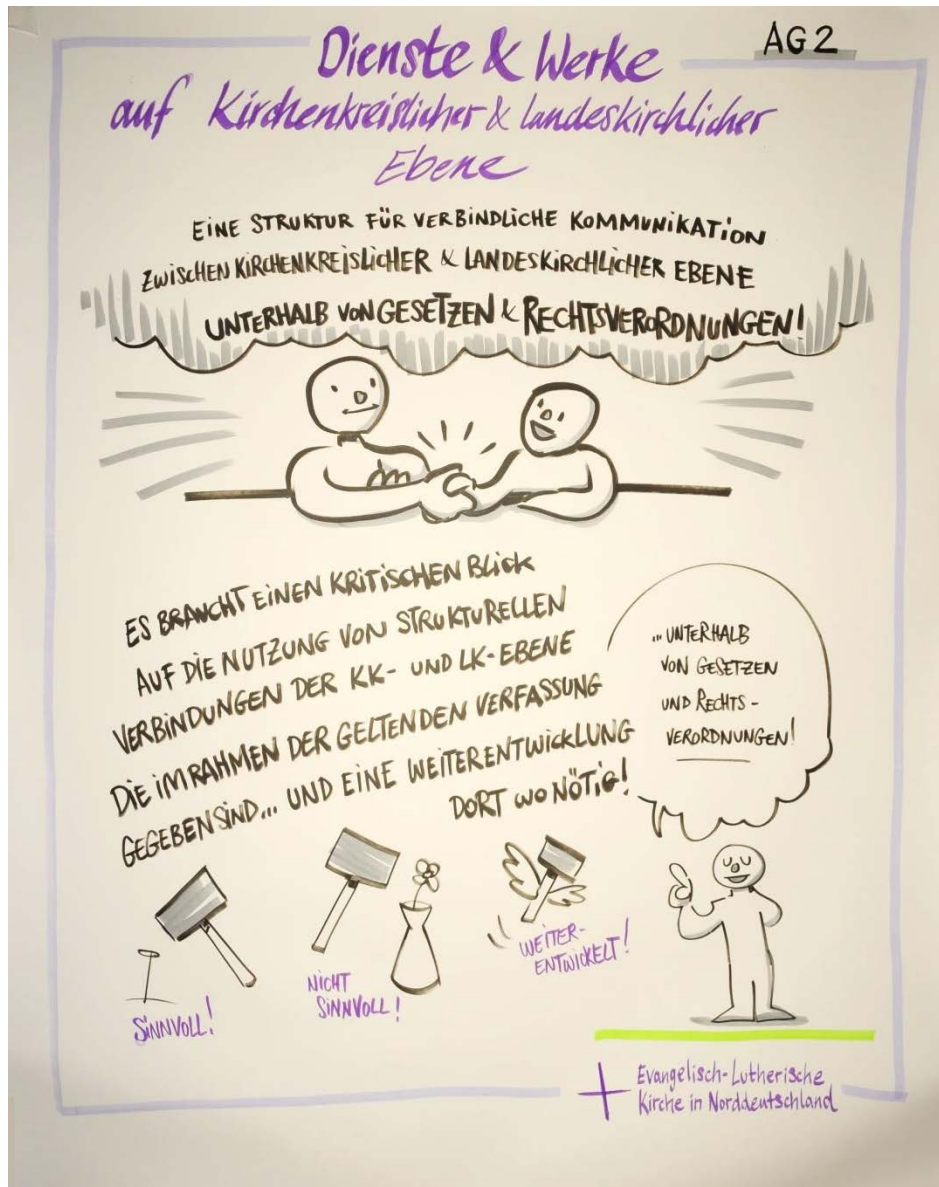 Dienste & Werke
AG2
auf Kirchenkreislicher & landeskirchlicher
Ebene
EINE STRUKTUR FÜR VERBINDLICHE KOMMUNIKATION
ZWISCHEN KIRCHENKREISLICHER & LANDESKIRCHLICHER EBENE
UNTERHALB VON GESETZEN & RECHTSVERORDNUNGEN!
ES BRAUCHT EINEN KRITISCHEN BLICK
AUF DIE NUTZUNG VON STRUKTURELLEN
VERBINDUNGEN DER KK- UND LK-EBENE
DIE IM RAHMEN DER GELTENDEN VERFASSUNG
GEGEBEN SIND... UND EINE WEITERENTWICKLUNG
DORT WO NÖTIG!
... UNTERHALB
VON GESETZEN
UND RECHTS-
VERORDNUNGEN!
SINNVOLL!
NICHT
SINNVOLL!
WEITER-
ENTWICKELT!
Evangelisch-Lutherische
Kirche in Norddeutschland